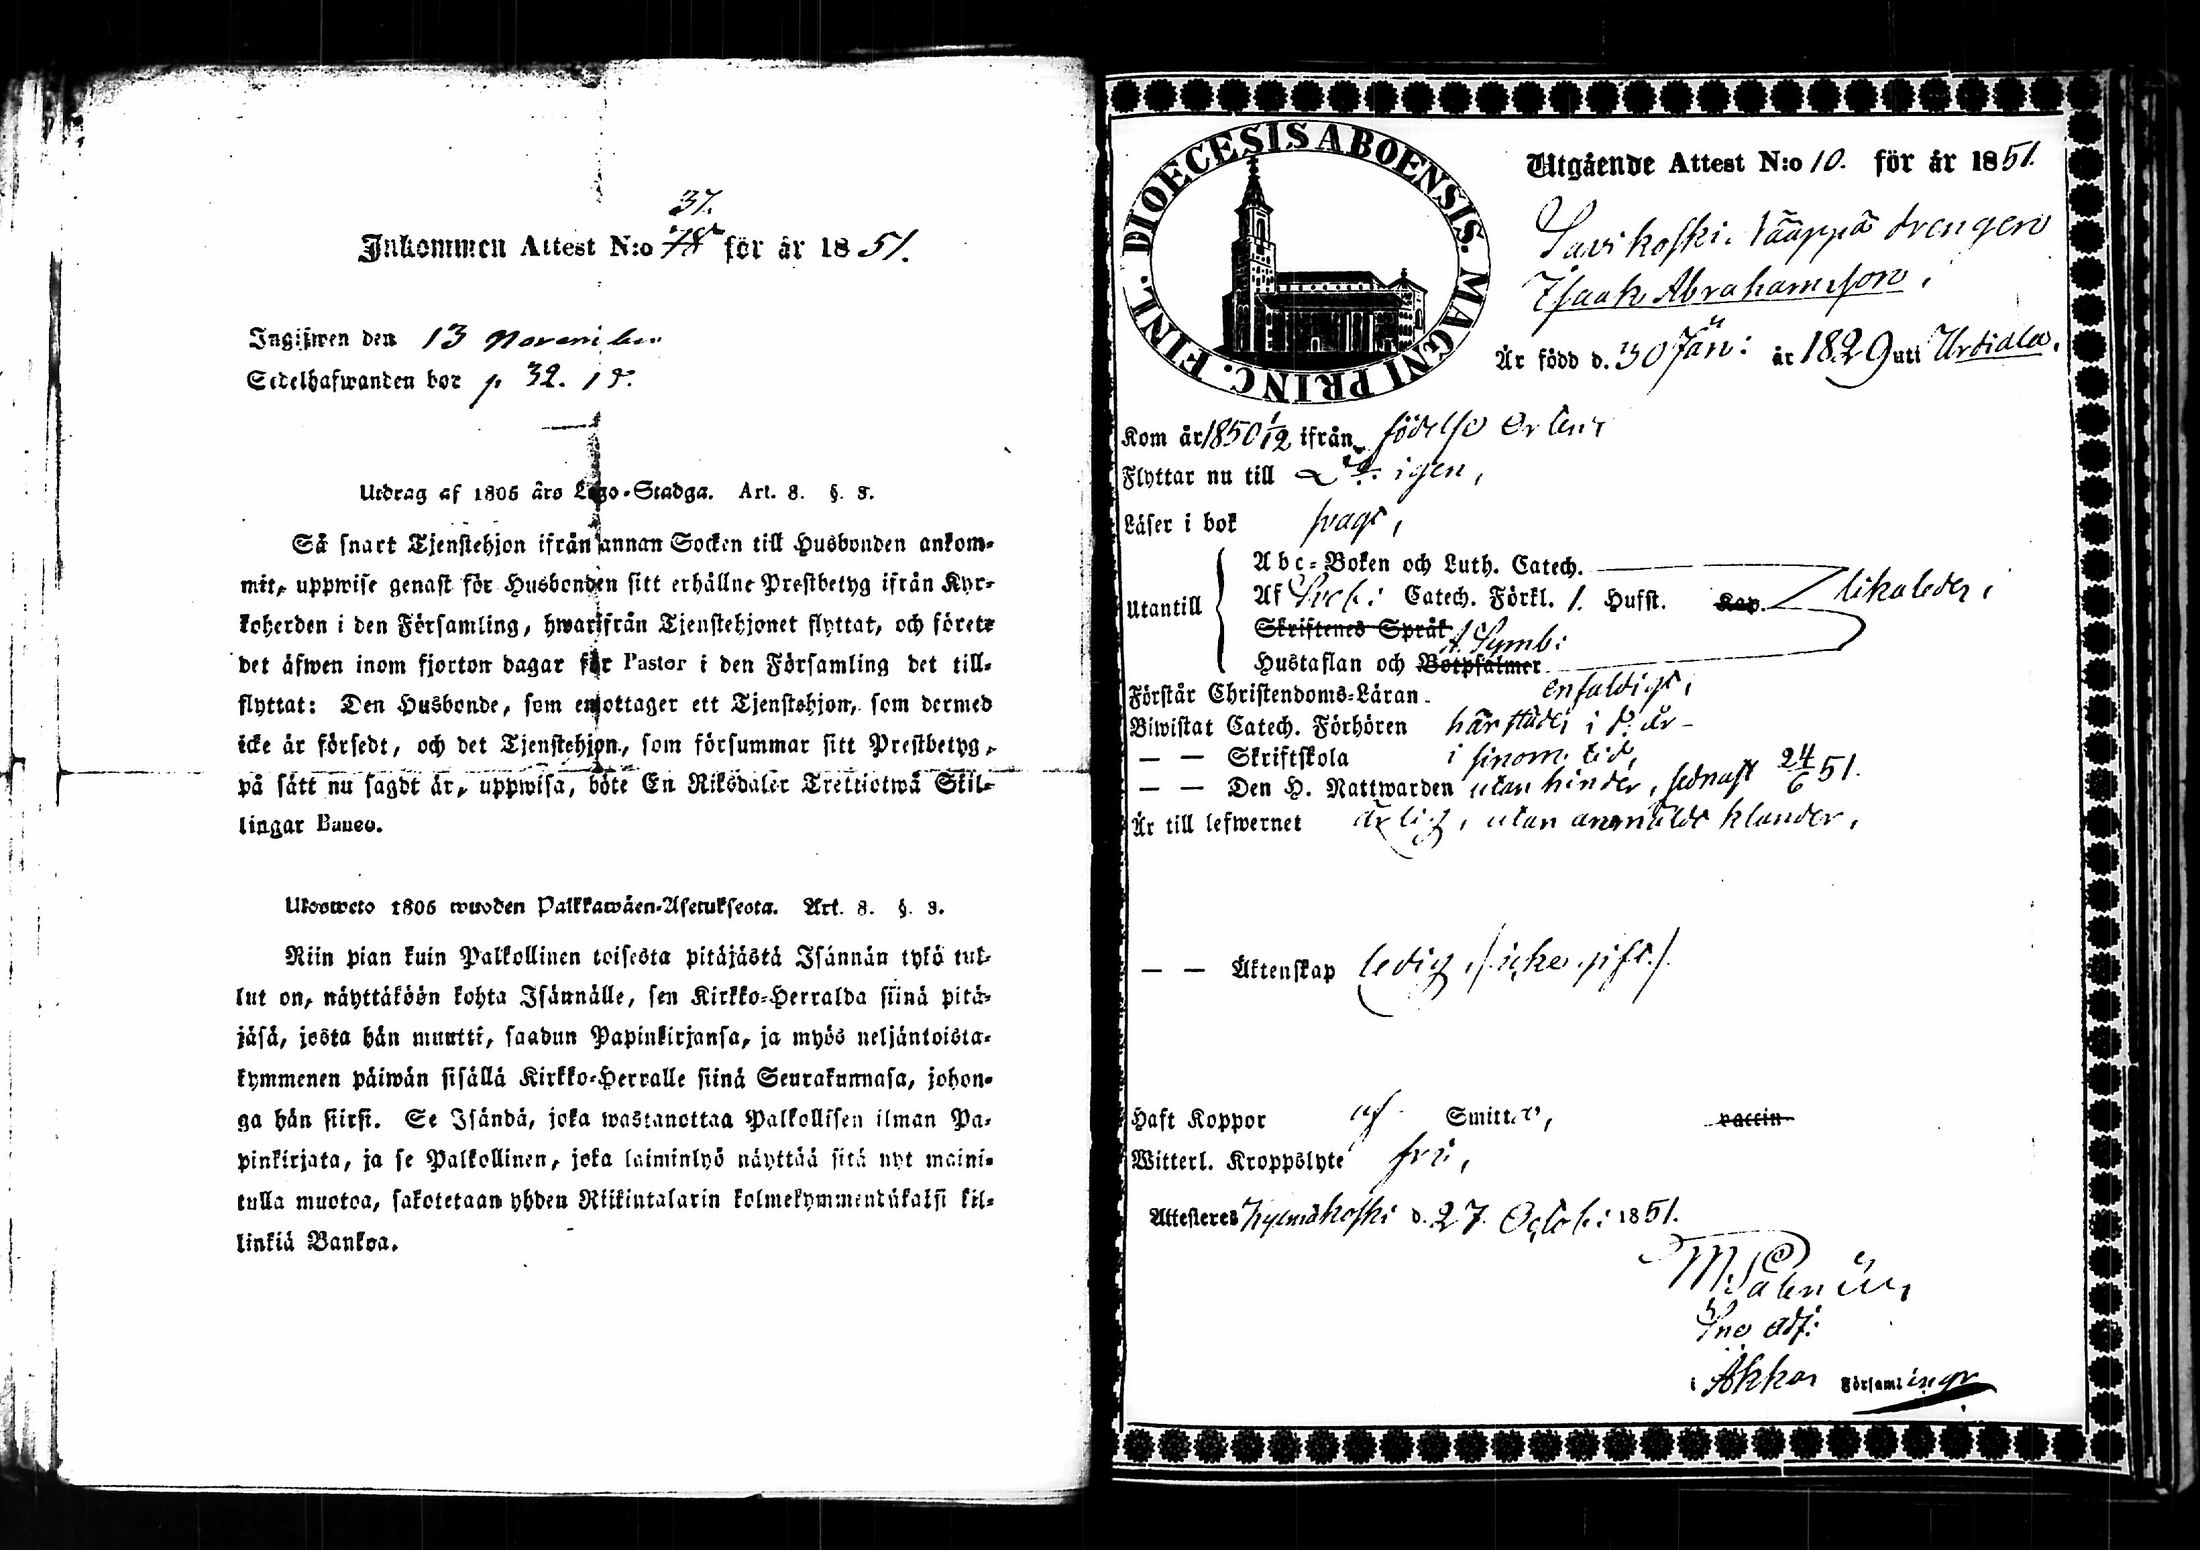 37.
Inkommen Attest N:o 78 för år 1851.
Ingifwen den 13 November
Sedelhafwanden bor p 32.
Utdrag af 1805 års Lego-Stadga. Art. 8. §. 3.
Så snart Tjenstehjon ifrån annan Socken till Husbonden ankom-
mit, uppwise genast för Husbonden sitt erhållne Prestbetyg ifrån Kyr-
koherden i den Församling, hwarifrån Tjenstehjonet flyttat, och förete
det äfwen inom fjorton dagar för Pastor i den Församling det till-
flyttat: Den Husbonde, som emottager ett Tjenstehjon, som dermed
icke är försedt, och det Tjenstehjon, som försummar sitt Prestbetyg,
på sätt nu sagdt är, uppwisa, böte En Riksdaler Trettiotwå Skil-
lingar Banco.
Ulosweto 1805 wuoden Palkkawäen-Asetuksesta. Art. 8. §. 3.
Niin pian kuin Palkollinen toisesta pitäjästä Isännän tykö tul-
lut on, näyttäköön kohta Isännälle, sen Kirkko-Herralda siinä pitä-
jäsä, josta hän muutti, saadun Papinkirjansa, ja myös neljäntoista-
kymmenen päiwän sisällä Kirkko-Herralle siinä Seurakunnasa, johon-
ga hän siirsi. Se Isändä, joka wastanottaa Palkollisen ilman Pa-
pinkirjata, ja se Palkollinen, joka laiminlyö näyttää sitä nyt maini-
tulla muotoa, sakotetaan yhden Riikintalarin kolmekymmendäkaksi kil-
linkiä Bankoa.
DIOECESIS ABOENSIS. MAGNI PRINC. FINL.
Utgående Attest N:o 10. för år 1851.
Savikoski Vääppä drengen
Isaak Abrahamsson,
Är född d. 30 Jan: år 1829 uti Urdiala.
Kom år 1850 1/12 ifrån födelse orten
Flyttar nu till Dito igen,
Läser i bok svagt,
Abc-Boken och Luth. Catech.
Utantill Af Sveb: Catech. Förkl. 1. Hufst. Kap. likaledes;
Skriftenes Språk
A. Symb:
Hustaflan och Botpsalmer
Förstår Christendoms-Läran enfaldigt,
Biwistat Catech. Förhören härstädes i d: år
— — Skriftskola i sinom tid,
— — Den H. Nattwarden utan hinder, sednast 24/6 51.
Är till lefwernet ärlig, utan anmäldt klander,
— — Äktenskap ledig /: icke gift :/
Haft Koppor af Smitta, vaccin
Witterl. Kroppslyte fri,
Attesteras Kylmäkoski d. 27 Octob: 1851.
Adj:
i Akkas Församlingr